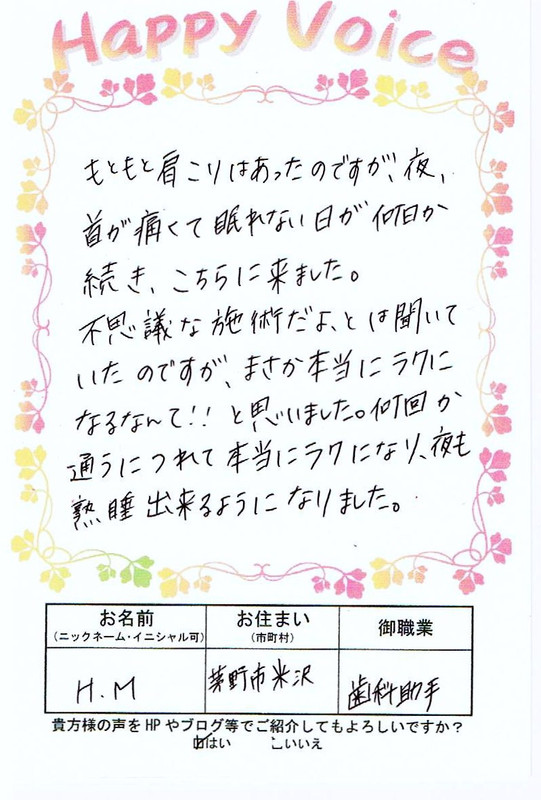 Happy Voice
もともと肩こりはあったのですが、夜、
首が痛くて眠れない日が何日か
続き、こちらに来ました。
不思議な施術だよ、とは聞いて
いたのですが、まさか本当にラクに
なるなんて!!と思いました。何回か
通うにつれて本当にラクになり、夜も
熟睡出来るようになりました。
お名前 お住まい 御職業
(ニックネーム・イニシャル可) (市町村)
H.M 茅野市米沢 歯科助手
貴方様の声をHPやブログ等でご紹介してもよろしいですか?
はい いいえ